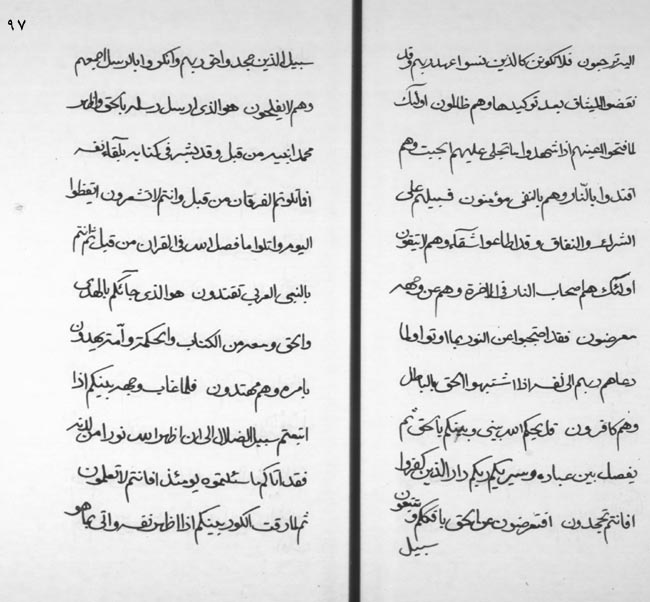 اليه ترجعون فلا تكونن كالذين نسوا عهد ربهم وقد
نقضوا الميثاق بعد توكيدها وهم ظالمون اولئك
لما فتحوا اعينهم اذا شهدوا بما تجلى عليهم احجبت وهم
اقتدوا بالنار وهم بالنفى مؤمنون فسبيلهم على
الشرك والنفاق وقد اطاعوا اشقاء وهم لا يتقون
اولئك هم اصحاب النار فى الاخرة وهم عن وجهه
معرضون فقد احتجبوا عن النور بما اوتوا ولما
دعاهم ربهم الى نفسه اذا اشتبهوا الحق بالباطل
وهم كافرون قل يحكم الله بينى وبينكم بالحق ثم
يفصل بين عباده وسيريكم ربكم دار الذين كفروا
افانتم تجحدون افتعرضون عن الحق بافككم وتتبعون
سبيل
٩٧
سبيل الذين جحدوا حق ربهم وانكروا بالرسل اجمعهم
وهم لا يفلحون هو الذى ارسل رسله بالحق واظهر
محمدا نبيه من قبل وقد بشر فى كتابه بلقاء نفسه
افاتلوتم الفرقان من قبل وانتم لا تشعرون اتيقظوا
اليوم واتلوا ما فصل الله فى القران من قبل ثم انتم
بالنبى العربى تقتدون هو الذى جائكم بالهدى
والحق ومعه من الكتاب والحكمة وامة يهدون
بامره وهم مهتدون فلما غاب وجهه بينكم اذا
اتبعتم سبيل الضلال الى ان اظهر الله نورا من لدنه
فقد اتاكم ما سئلتموه يومئذ افانتم لا تعلمون
ثم لما دقت الكور بينكم اذا اظهر نفسه واتى بما هو